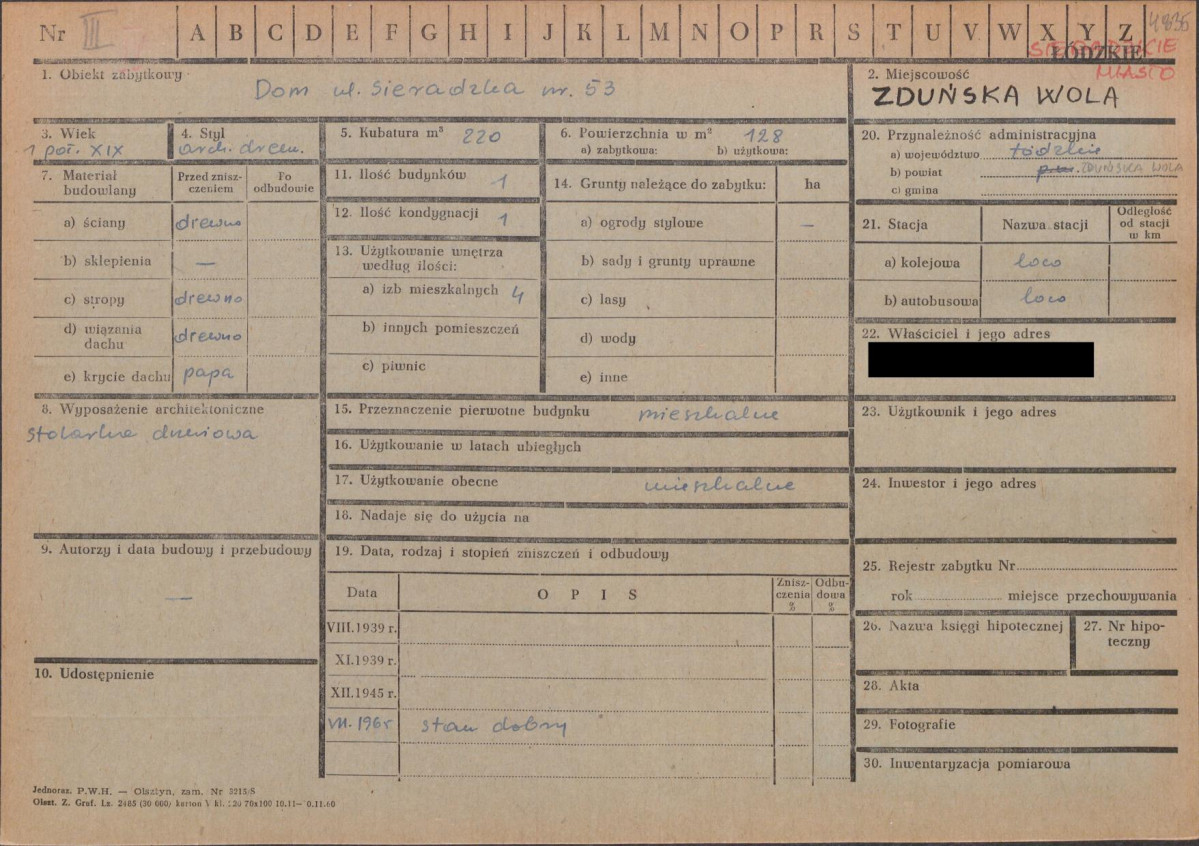 Nr III A B C D E F G H I J K L M N O P R S T U V W X Y Z 4836
ŁÓDZKIE
SIERADZKIE
MIASTO
1. Obiekt zabytkowy
Dom ul. Sieradzka nr. 53
2. Miejscowość
ZDUŃSKA WOLA
3. Wiek
1 poł. XIX
4. Styl
arch. drewn.
5. Kubatura m³ 220
6. Powierzchnia w m² 128
a) zabytkowa: b) użytkowa:
20. Przynależność administracyjna
a) województwo łódzkie
b) powiat ZDUŃSKA WOLA
c) gmina
7. Materiał budowlany
Przed zniszczeniem
Po odbudowie
a) ściany drewno
b) sklepienia —
c) stropy drewno
d) wiązania dachu drewno
e) krycie dachu papa
11. Ilość budynków 1
12. Ilość kondygnacji 1
13. Użytkowanie wnętrza według ilości:
a) izb mieszkalnych 4
b) innych pomieszczeń
c) piwnic
14. Grunty należące do zabytku: ha
a) ogrody stylowe —
b) sady i grunty uprawne
c) lasy
d) wody
e) inne
21. Stacja Nazwa stacji Odległość od stacji w km
a) kolejowa loco
b) autobusowa loco
22. Właściciel i jego adres
8. Wyposażenie architektoniczne
stolarka drzwiowa
15. Przeznaczenie pierwotne budynku mieszkalne
16. Użytkowanie w latach ubiegłych
17. Użytkowanie obecne mieszkalne
18. Nadaje się do użycia na
23. Użytkownik i jego adres
24. Inwestor i jego adres
9. Autorzy i data budowy i przebudowy
—
10. Udostępnienie
19. Data, rodzaj i stopień zniszczeń i odbudowy
Data OPIS Zniszczenia % Odbudowa %
VIII.1939 r.
XI.1939 r.
XII.1945 r.
VII. 1965 stan dobry
25. Rejestr zabytku Nr
rok miejsce przechowywania
26. Nazwa księgi hipotecznej
27. Nr hipoteczny
28. Akta
29. Fotografie
30. Inwentaryzacja pomiarowa
Jednoraz. P.W.H. — Olsztyn, zam. Nr 3215/S
Olszt. Z. Graf. Lz. 2485 (30 000) karton V kl.